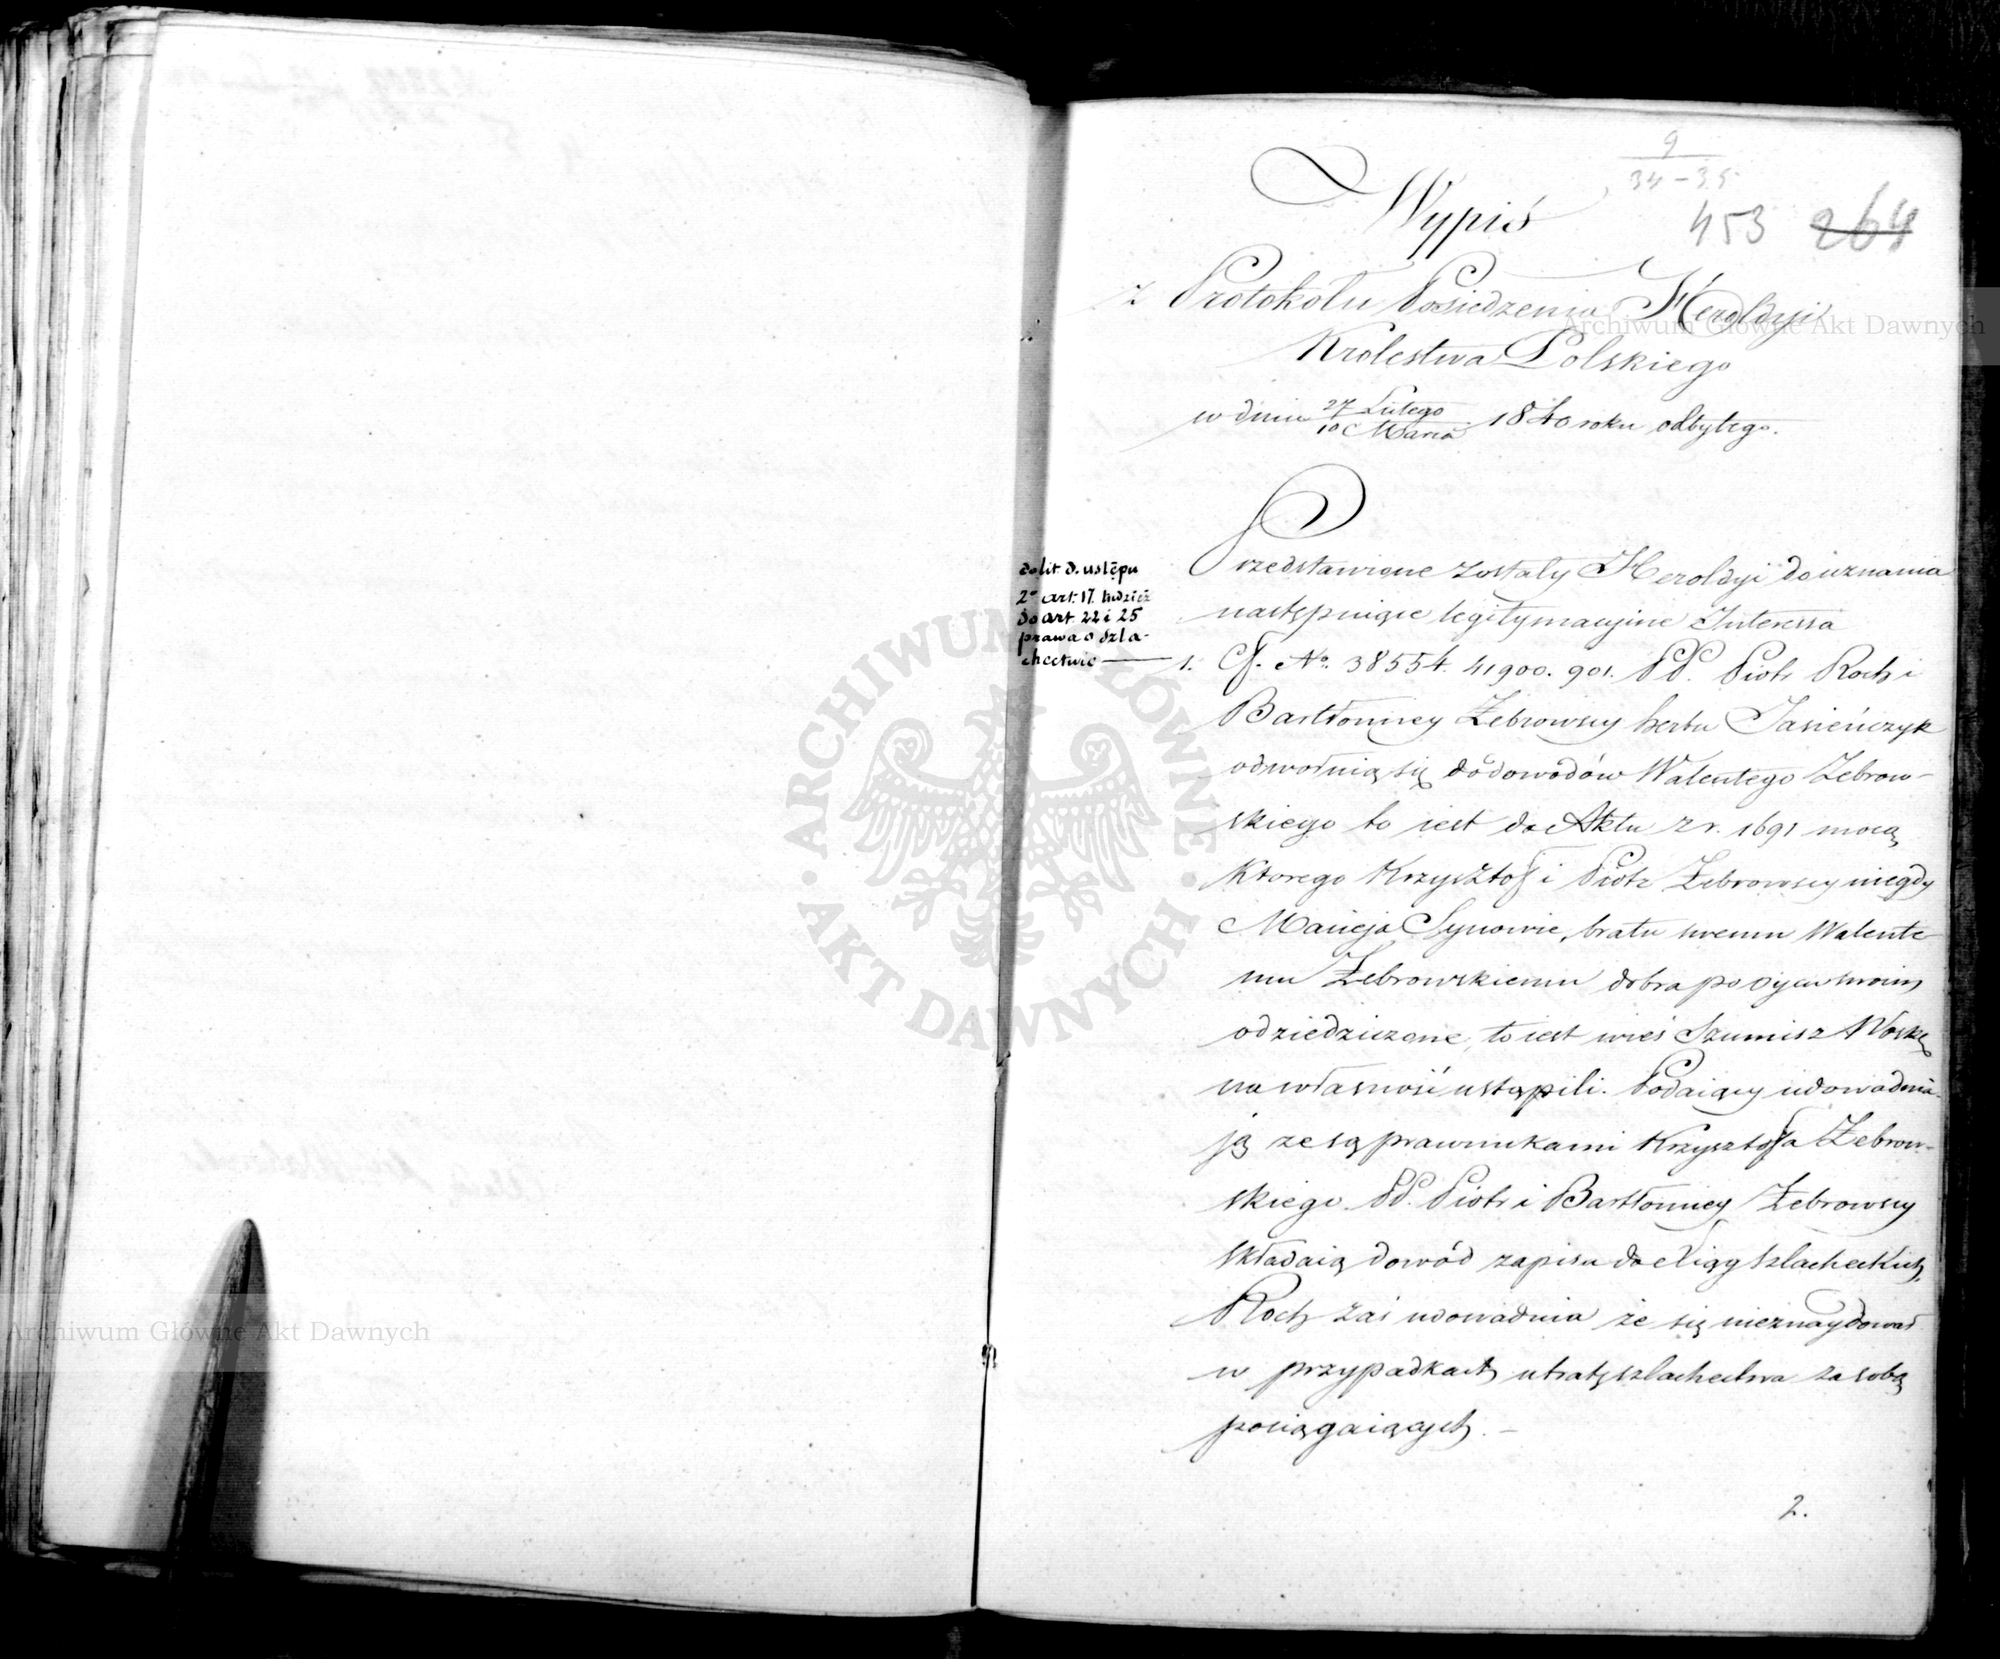 9
34-35
453 264
Wypis
z Protokołu Posiedzenia Heroldyi
Królestwa Polskiego
w dniu 27 Lutego / 10 Marca 1840 roku odbytego.
Przedstawione zostały Heroldyi do uznania
następuiące legitymacyine Interessa
do lit. d. ustępu
2º art. 17. tudzież
do art. 22 i 25
prawa o szla-
chectwie
1. Nº 38554. 41900. 901. PP. Piotr Roch i
Bartłomiey Żebrowscy herbu Jasieńczyk
odwołuią się do dowodów Walentego Żebrow-
skiego to iest do Aktu z r. 1691 mocą
którego Krzysztof i Piotr Żebrowscy niegdy
Macieja Synowie, bratu swemu Walente
mu Żebrowskiemu dobra po oycu swoim
odziedziczone, to iest wieś Szumisz
na własność ustąpili. Podaiący udowadnia-
ją ze są prawnukami Krzysztofa Żebrow-
skiego. PP. Piotr i Bartłomiey Żebrowscy
składaią dowód zapisu do Xiąg szlacheckich,
Roch zaś udowadnia że się nieznaydował
w przypadkach utratę szlachectwa za sobą
pociągaiących. -
2.
ARCHIWUM GŁÓWNE
AKT DAWNYCH
Archiwum Główne Akt Dawnych
Archiwum Główne Akt Dawnych